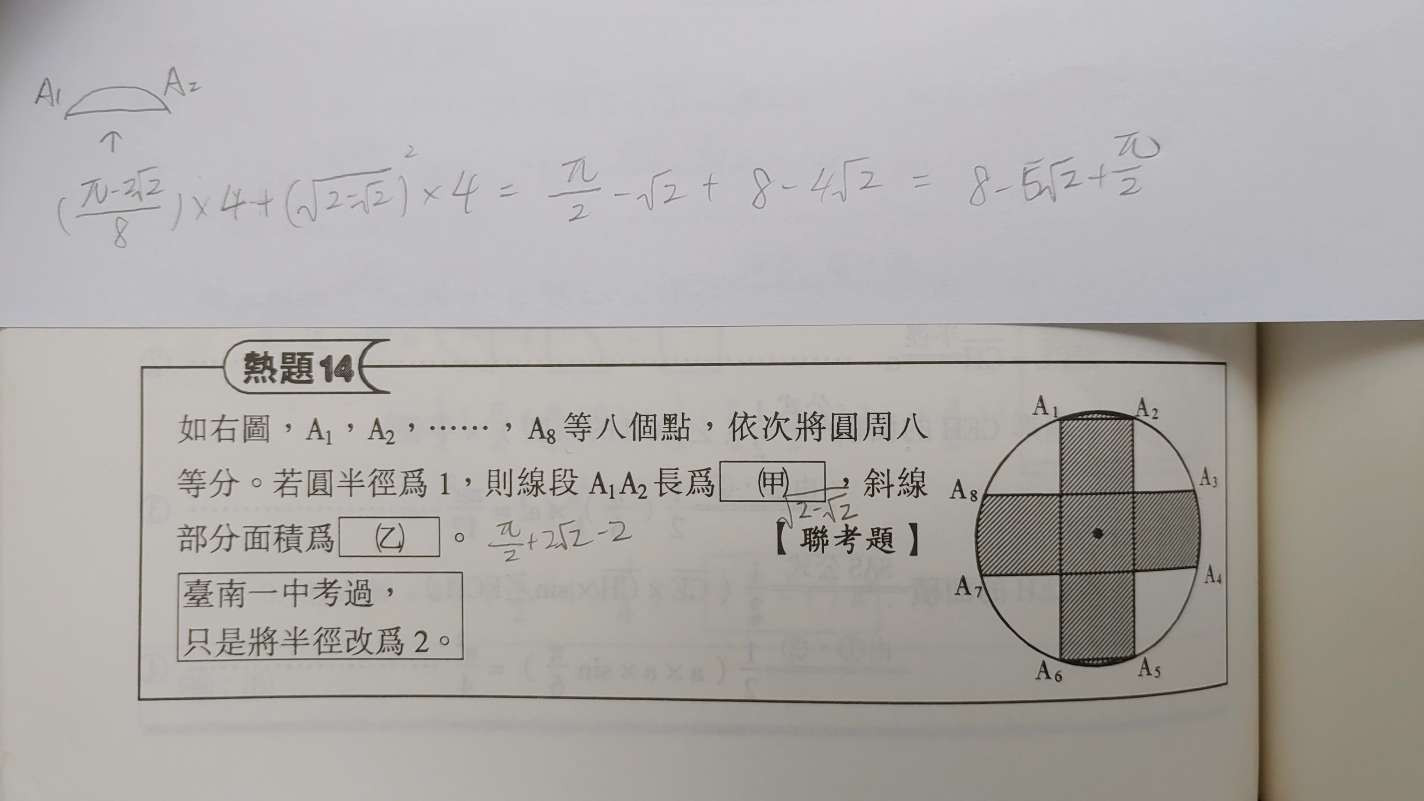 A₁ A₂
↑
(π-2√2/8)×4+(√2-√2)²×4 = π/2-√2+8-4√2 = 8-5√2+π/2
熱題14
如右圖，A₁，A₂，……，A₈等八個點，依次將圓周八
等分。若圓半徑爲1，則線段A₁A₂長爲 (甲) ，斜線
√2-√2
部分面積爲 (乙) 。 π/2+2√2-2 【聯考題】
臺南一中考過，
只是將半徑改爲2。
A₁ A₂
A₈ A₃
A₇ A₄
A₆ A₅